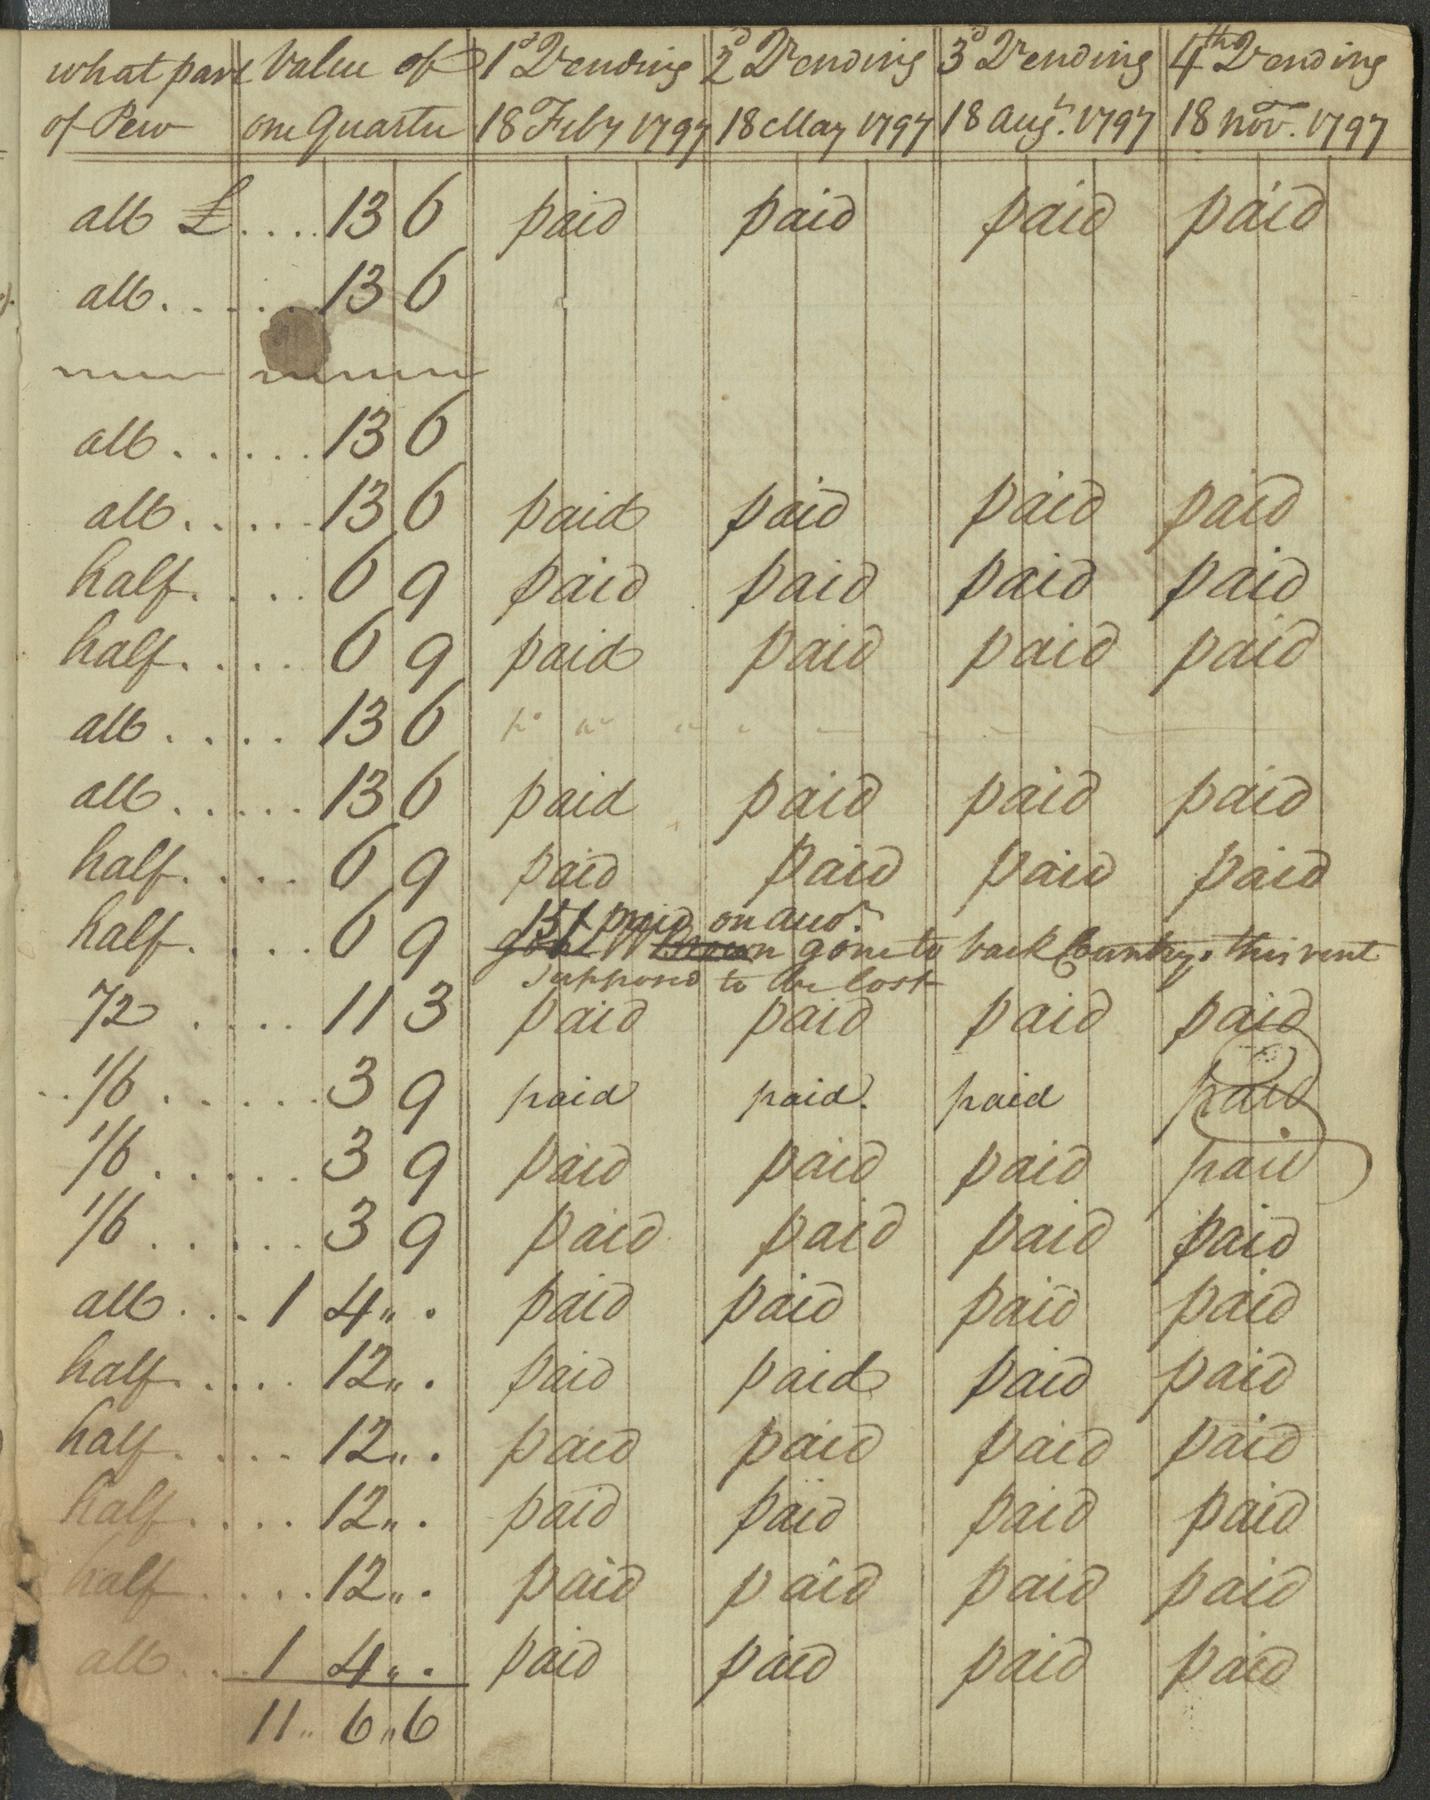 what part Value of 1st Qr ending 2d Qr ending 3d Qr ending 4th Qr ending
of Pew one Quarter 18 Feby 1797 18 May 1797 18 Augt. 1797 18 Nov. 1797
all £ .... 13 6 paid paid paid paid
all ...... 13 6
all ...... 13 6
all ...... 13 6 paid paid paid paid
half .... 6 9 paid paid paid paid
half .... 6 9 paid paid paid paid
all .... 13 6
all ..... 13 6 paid paid paid paid
half .... 6 9 paid paid paid paid
15/ paid on
half .... 6 9 gone to back Country. this rent
supposed to be lost
.... 11 3 paid paid paid paid
1/6 ...... 3 9 paid paid. paid paid
1/6 ..... 3 9 paid paid paid paid
1/6 ..... 3 9 paid paid paid paid
all ... 1 4 „ . paid paid paid paid
half .... 12 „ . paid paid paid paid
half .... 12 „ . paid paid paid paid
half .... 12 „ . paid paid paid paid
half .... 12 „ . paid paid paid paid
all ... 1 4 „ . paid paid paid paid
11 „ 6 „ 6